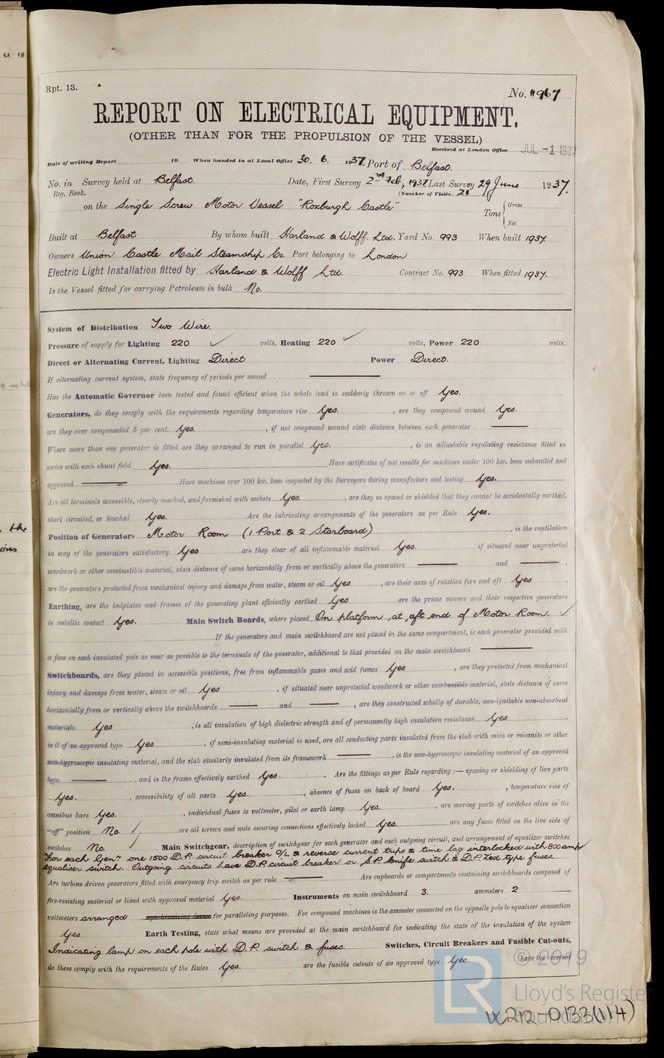 Rpt. 13.
No.
REPORT ON ELECTRICAL EQUIPMENT.
(OTHER THAN FOR THE PROPULSION OF THE VESSEL)
Received at London Office JUL -1 1937
Date of writing Report 19 When handed in at Local Office 30. 6. 1937 Port of Belfast.
No. in Survey held at Belfast. Date, First Survey 2nd Feb, 1937 Last Survey 29 June 1937.
Reg. Book. (Number of Visits 25
on the Single Screw Motor Vessel "Roxburgh Castle" Tons { Gross Net
Built at Belfast By whom built Harland & Wolff. Ltd. Yard No. 993 When built 1937.
Owners Union Castle Mail Steamship Co. Port belonging to London
Electric Light Installation fitted by Harland & Wolff Ltd. Contract No. 993 When fitted 1937.
Is the Vessel fitted for carrying Petroleum in bulk No.
System of Distribution Two Wire.
Pressure of supply for Lighting 220 ✓ volts, Heating 220 ✓ volts, Power 220 volts.
Direct or Alternating Current, Lighting Direct Power Direct.
If alternating current system, state frequency of periods per second
Has the Automatic Governor been tested and found efficient when the whole load is suddenly thrown on or off Yes.
Generators, do they comply with the requirements regarding temperature rise Yes. , are they compound wound Yes.
are they over compounded 5 per cent. Yes. , if not compound wound state distance between each generator
Where more than one generator is fitted are they arranged to run in parallel Yes. , is an adjustable regulating resistance fitted in
series with each shunt field Yes. Have certificates of test results for machines under 100 kw. been submitted and
approved Have machines over 100 kw. been inspected by the Surveyors during manufacture and testing Yes.
Are all terminals accessible, clearly marked, and furnished with sockets Yes. , are they so spaced or shielded that they cannot be accidentally earthed,
short circuited, or touched Yes. Are the lubricating arrangements of the generators as per Rule Yes.
Position of Generators Motor Room (1 Port & 2 Starboard) , is the ventilation
in way of the generators satisfactory Yes are they clear of all inflammable material Yes. if situated near unprotected
woodwork or other combustible material, state distance of same horizontally from or vertically above the generators and
are the generators protected from mechanical injury and damage from water, steam or oil Yes , are their axes of rotation fore and aft Yes .
Earthing, are the bedplates and frames of the generating plant efficiently earthed Yes are the prime movers and their respective generators
in metallic contact Yes. Main Switch Boards, where placed On platform at aft end of Motor Room. ✓
If the generators and main switchboard are not placed in the same compartment, is each generator provided with
a fuse on each insulated pole as near as possible to the terminals of the generator, additional to that provided on the main switchboard
Switchboards, are they placed in accessible positions, free from inflammable gases and acid fumes Yes , are they protected from mechanical
injury and damage from water, steam or oil Yes , if situated near unprotected woodwork or other combustible material, state distance of same
horizontally from or vertically above the switchboards and , are they constructed wholly of durable, non-ignitable non-absorbent
materials Yes , is all insulation of high dielectric strength and of permanently high insulation resistance Yes .
is it of an approved type Yes , if semi-insulating material is used, are all conducting parts insulated from the slab with mica or micanite or other
non-hygroscopic insulating material, and the slab similarly insulated from its framework , is the non-hygroscopic insulating material of an approved
type , and is the frame effectively earthed Yes. Are the fittings as per Rule regarding :— spacing or shielding of live parts
Yes. , accessibility of all parts Yes. , absence of fuses on back of board Yes. , temperature rise of
omnibus bars Yes. , individual fuses to voltmeter, pilot or earth lamp Yes. , are moving parts of switches alive in the
"off" position No. are all screws and nuts securing connections effectively locked Yes. are any fuses fitted on the live side of
switches No Main Switchgear, description of switchgear for each generator and each outgoing circuit, and arrangement of equalizer switches
For each Genr. one 1500 D.P. circuit breaker O/L & reverse current trips & time lag interlocked with 800 amp
equaliser switch. Outgoing circuits have D.P. circuit breaker or S.P. knife switch & D.P. Zed type fuses.
Are turbine driven generators fitted with emergency trip switch as per rule Are cupboards or compartments containing switchboards composed of
fire-resisting material or lined with approved material Yes. Instruments on main switchboard 3. ammeters 2
voltmeters arranged for paralleling purposes. For compound machines is the ammeter connected on the opposite pole to equaliser connection
Yes. Earth Testing, state what means are provided at the main switchboard for indicating the state of the insulation of the system
Indicating lamp on each pole with D.P. switch & fuses. Switches, Circuit Breakers and Fusible Cut-outs,
do these comply with the requirements of the Rules Yes. are the fusible cutouts of an approved type Yes. have the reversed
© 2019
Lloyd's Register
Foundation
LR